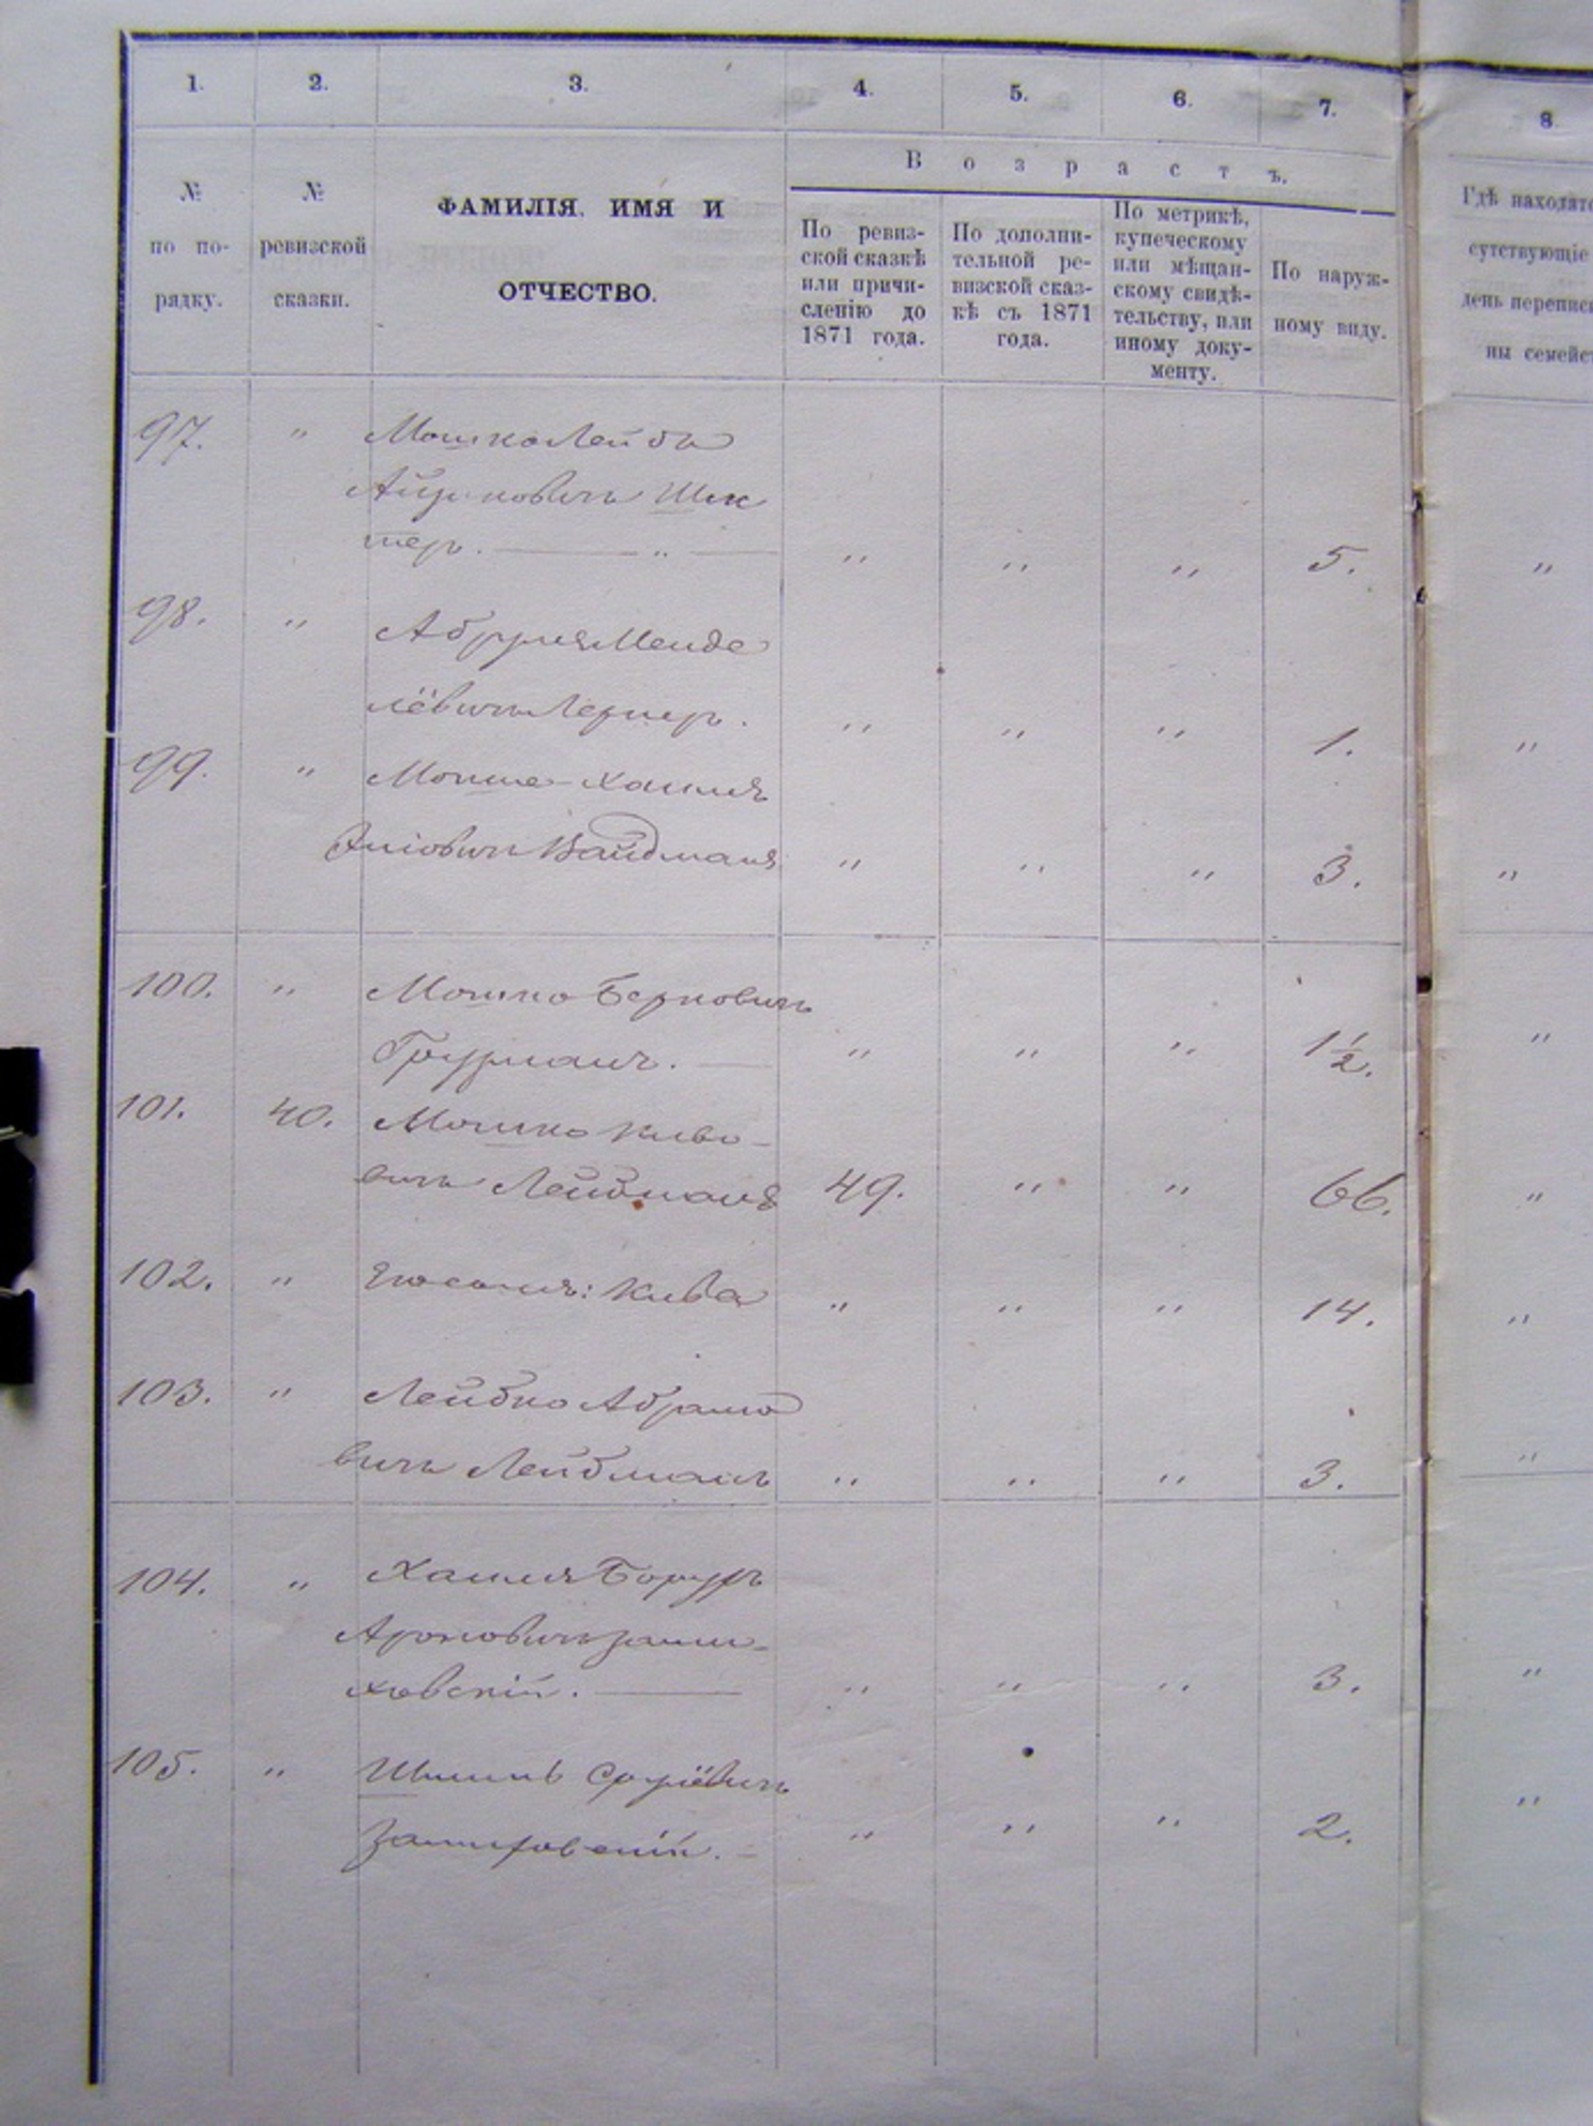 1. 2. 3. 4. 5. 6. 7. 8.
№ по по-рядку.
№ ревизской сказки.
ФАМИЛІЯ, ИМЯ И
ОТЧЕСТВО.
В о з р а с т ъ.
По ревиз-
ской сказкѣ
или причи-
сленію до
1871 года.
По дополни-
тельной ре-
визской сказ-
кѣ съ 1871
года.
По метрикѣ,
купеческому
или мѣщан-
скому свидѣ-
тельству, или
иному доку-
менту.
По наруж-
ному виду.
Гдѣ находятс
сутствующіе
день переписи
ны семейс
97. " Мошко Лейба
Айзиковичъ Шех
теръ. " " " " 5. "
98. " Абрумъ Менде
лёвичъ Лернеръ. " " " 1. "
99. " Мошше-Хаимъ
Вайдманъ " " " 3. "
100. " Мошко Берковичъ
" " " 1½. "
101. 40. Мошко Киво-
вичъ Лейдманъ 49. " " 66. "
102. " Его сынъ: Кива " " " 14. "
103. " Лейбко Абрамо
вичъ Лейдманъ " " " 3. "
104. " Хаимъ Борухъ
Ароновичъ Зами-
ховскій. " " " 3. "
105. " Сруліёвичъ
Замиховскій. " " " 2. "